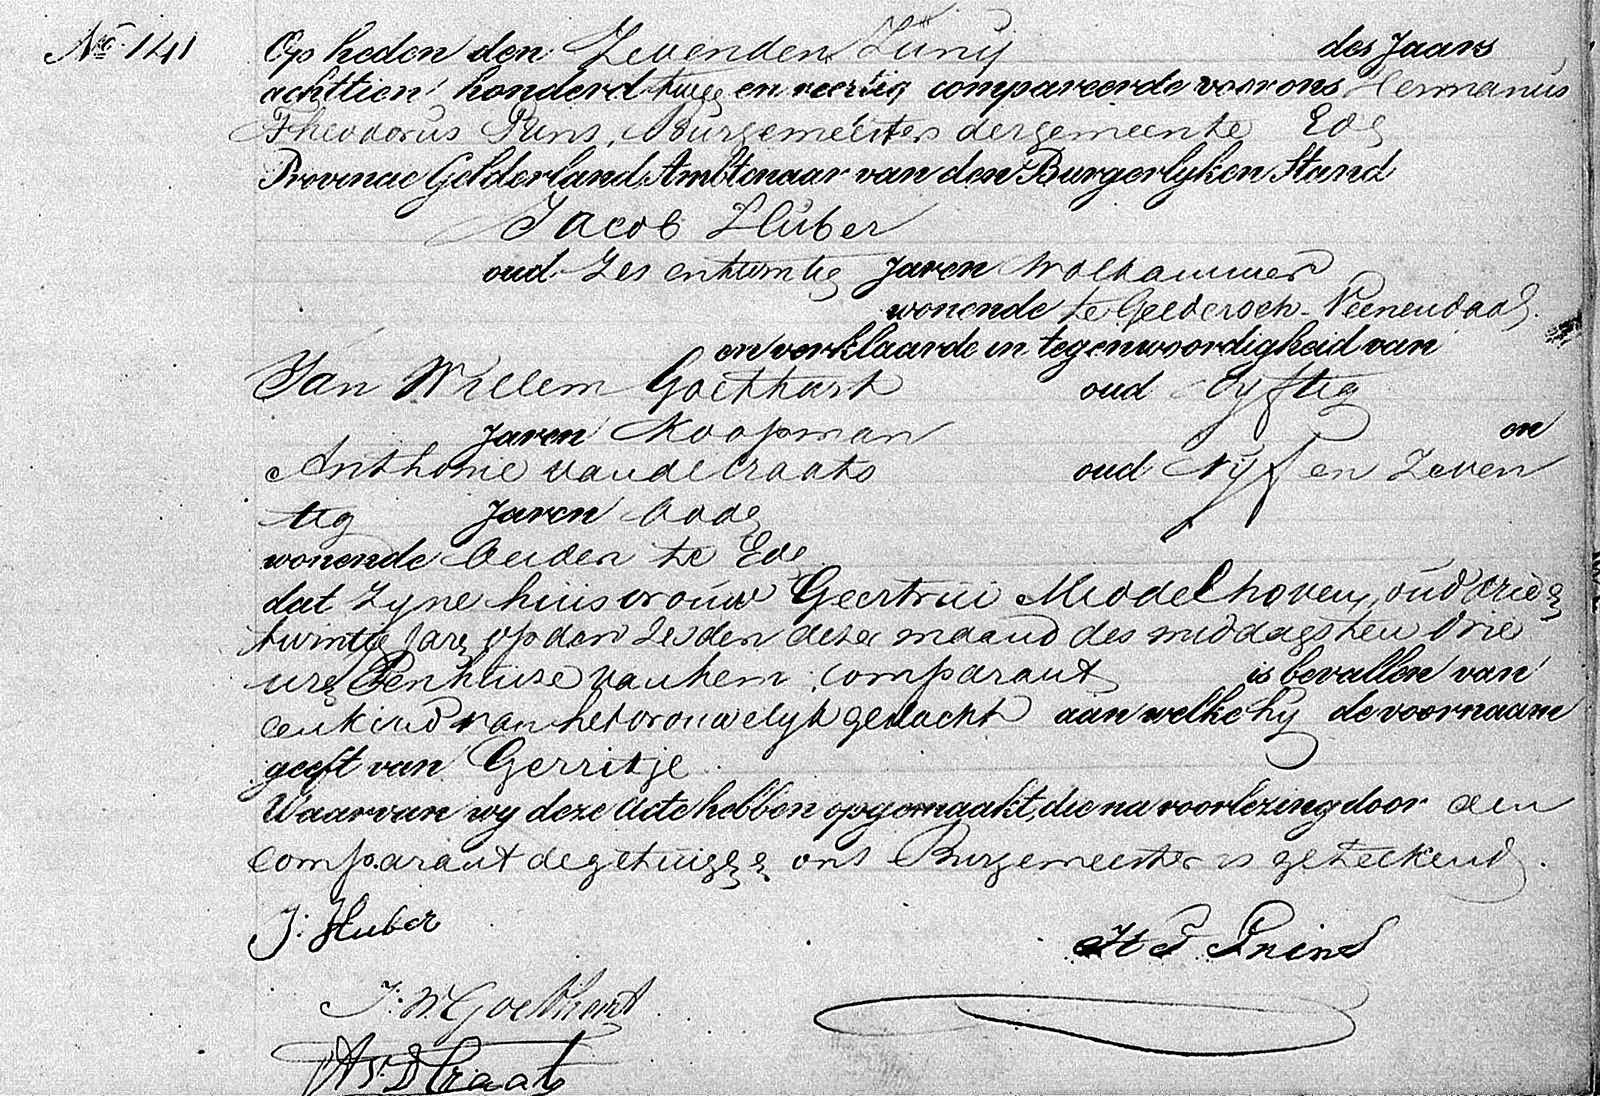 No. 141
Op heden den Zevenden Junij des Jaars
achttien honderd twee en veertig compareerde voor ons Hermanus
Theodorus Prins, Burgemeester der gemeente Ede
Provincie Gelderland, Ambtenaar van den Burgerlyken Stand
Jacob Huber
oud Zes en twintig Jaren Wolkammer
wonende te Geldersch-Veenendaal.
en verklaarde in tegenwoordigheid van
Jan Willem Goethart oud Vyftig
Jaren Koopman en
Anthonie van de Craats oud Vyf en Zeven
tig Jaren bode
wonende beiden te Ede
dat Zyne huisvrouw Geertrui Middelhoven, oud drie &
twintig Jare op den Zesden deze maand des middags ten drie
ure ten huise van hem comparant is bevallen van
een kind van het vrouwelyk geslacht aan welke hy de voornaam
geeft van Gerritje.
Waarvan wy deze acte hebben opgemaakt, die na voorlezing door den
comparant de getuige & ons Burgemeester is geteekend.
J: Huber
H T Prins
J: W. Goethart
A v. D Craats